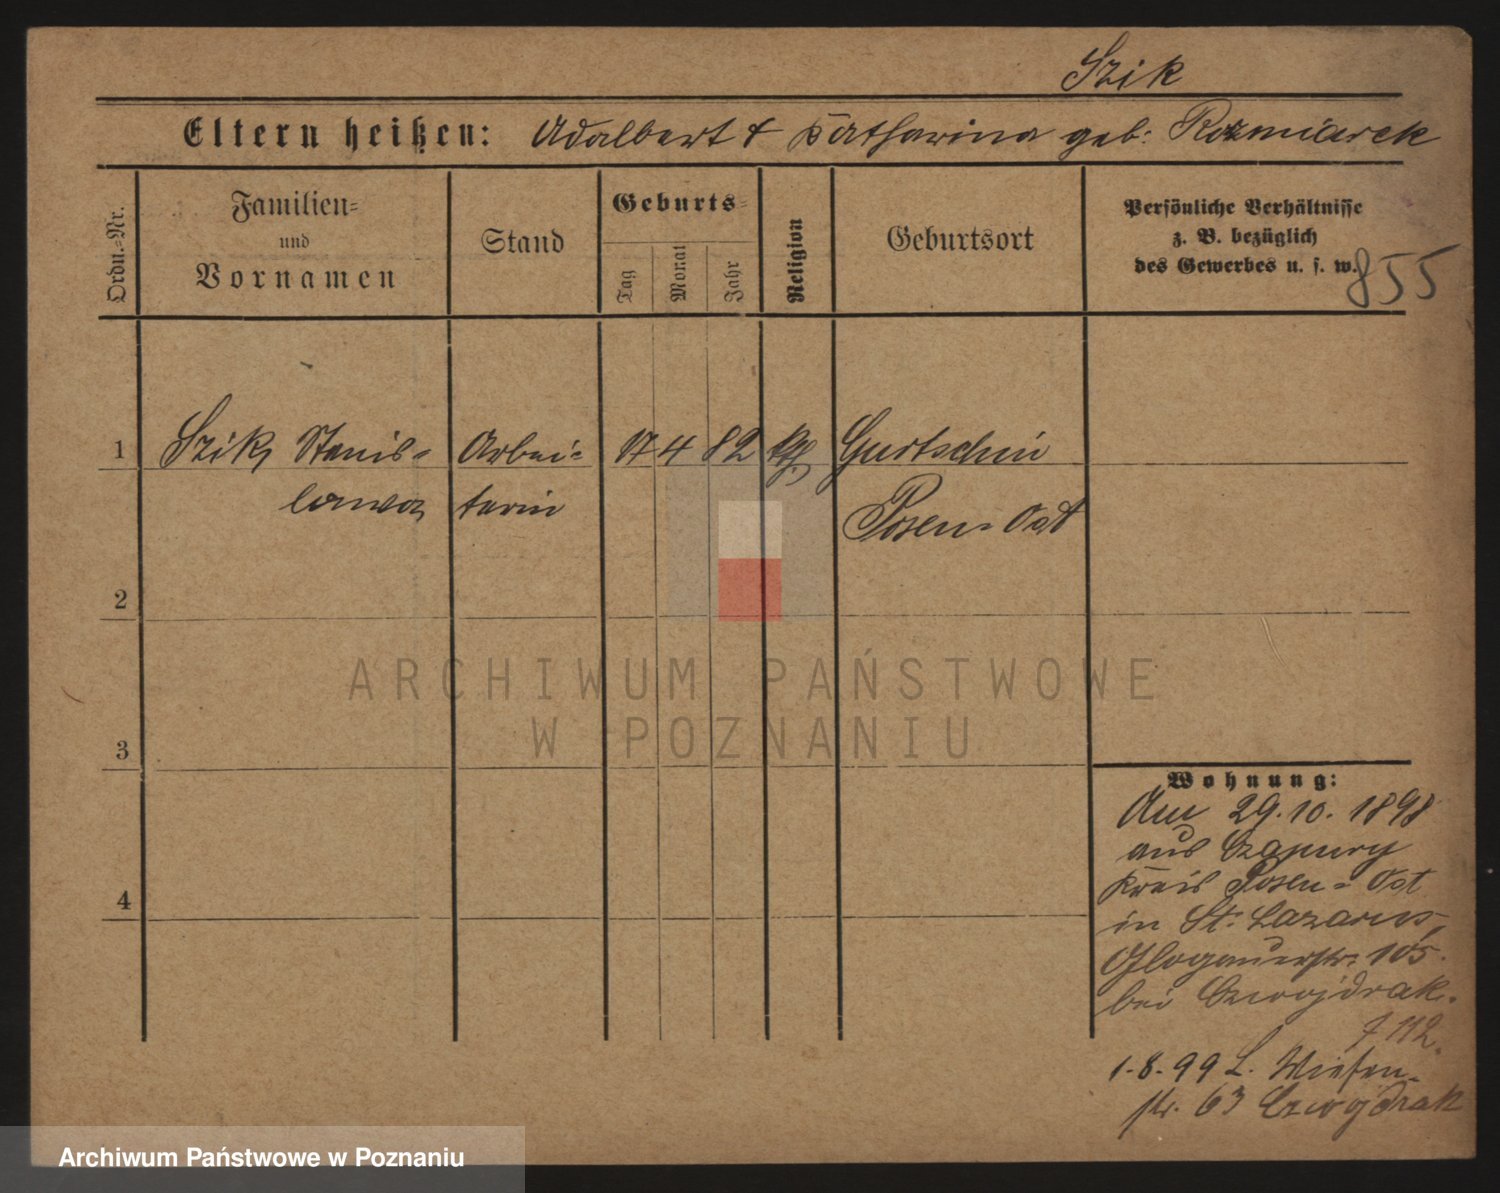 Szik
Eltern heißen: Adalbert & Katharina geb: Rozmiarek
Ordn.=Nr.
Familien=
und
Vornamen
Stand
Geburts=
Tag
Monat
Jahr
Religion
Geburtsort
Persönliche Verhältnisse
z. B. bezüglich
des Gewerbes u. s. w.
855
1 Szik, Stanis= Arbei= 17 4 82 kth. Gurtschin
lawa, terin Posen=Ost
2
3
4
Wohnung:
Am 29.10.1898
aus Czapury
Kreis Posen=Ost
in St: Lazarus,
Glogauerstr: 105.
bei Czwojdrak.
J 112.
1.8.99 L. Wiesen=
str. 63 Czwojdrak
ARCHIWUM PAŃSTWOWE
W POZNANIU
Archiwum Państwowe w Poznaniu